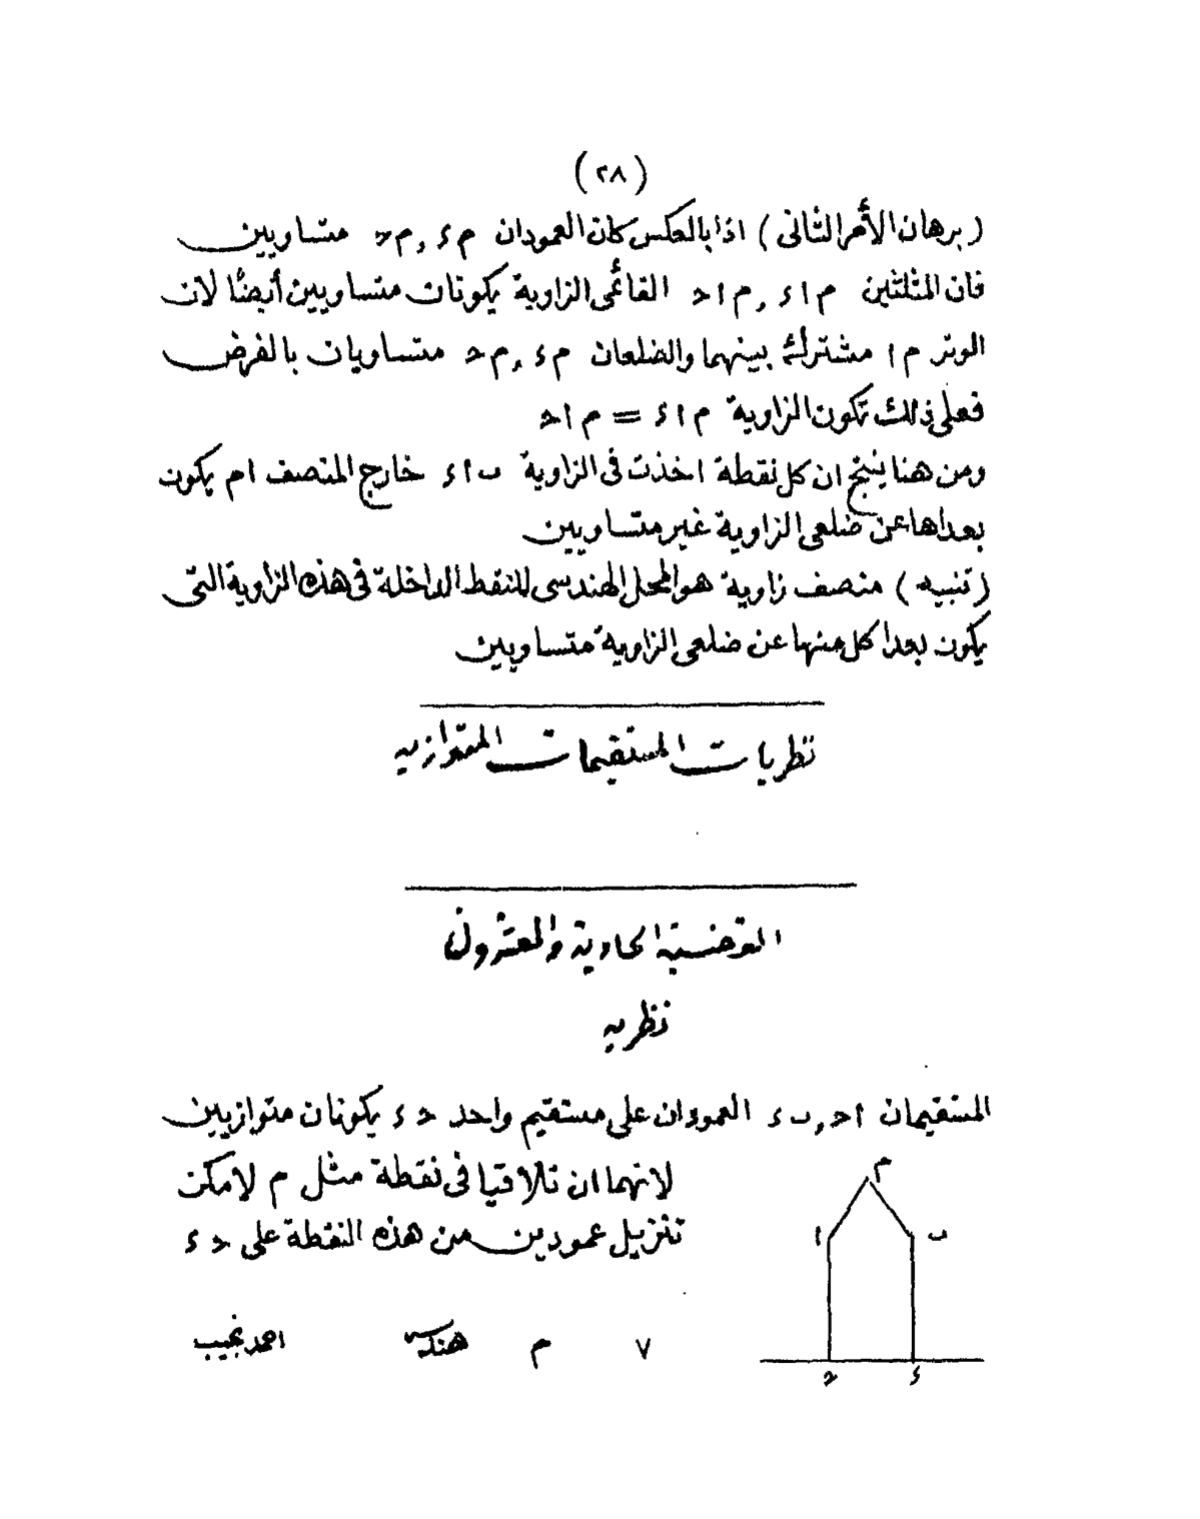 (٢٨)
(برهان الأمر الثانى) اذا بالعكس كان العمودان م ء , م ح متساويين
فان المثلثين م ا ء , م ا ح القائمى الزاوية يكونان متساويين أيضًا لان
الوتر م ا مشترك بينهما والضلعان م ء , م ح متساويان بالفرض
فعلى ذلك تكون الزاوية م ا ء = م ا ح
ومن هنا ينتج ان كل نقطة اخذت فى الزاوية ٮ ا ء خارج المنصف ا م يكون
بعداها عن ضلعى الزاوية غير متساويين
(تنبيه) منصف زاوية هو المحل الهندسى للنقط الداخلة فى هذه الزاوية التى
يكون بعدا كل منها عن ضلعى الزاوية متساويين
نظريات المستقيمات المتوازيه
القضية الحادية والعشرون
نظريه
المستقيمان ا ح , ٮ ء العمودان على مستقيم واحد ح ء يكونان متوازيين
لانهما ان تلاقيا فى نقطة مثل م لامكن
تنزيل عمودين من هذه النقطة على ح ء
م
ا ٮ
ح ء
٧ م هندسه احمد نجيب